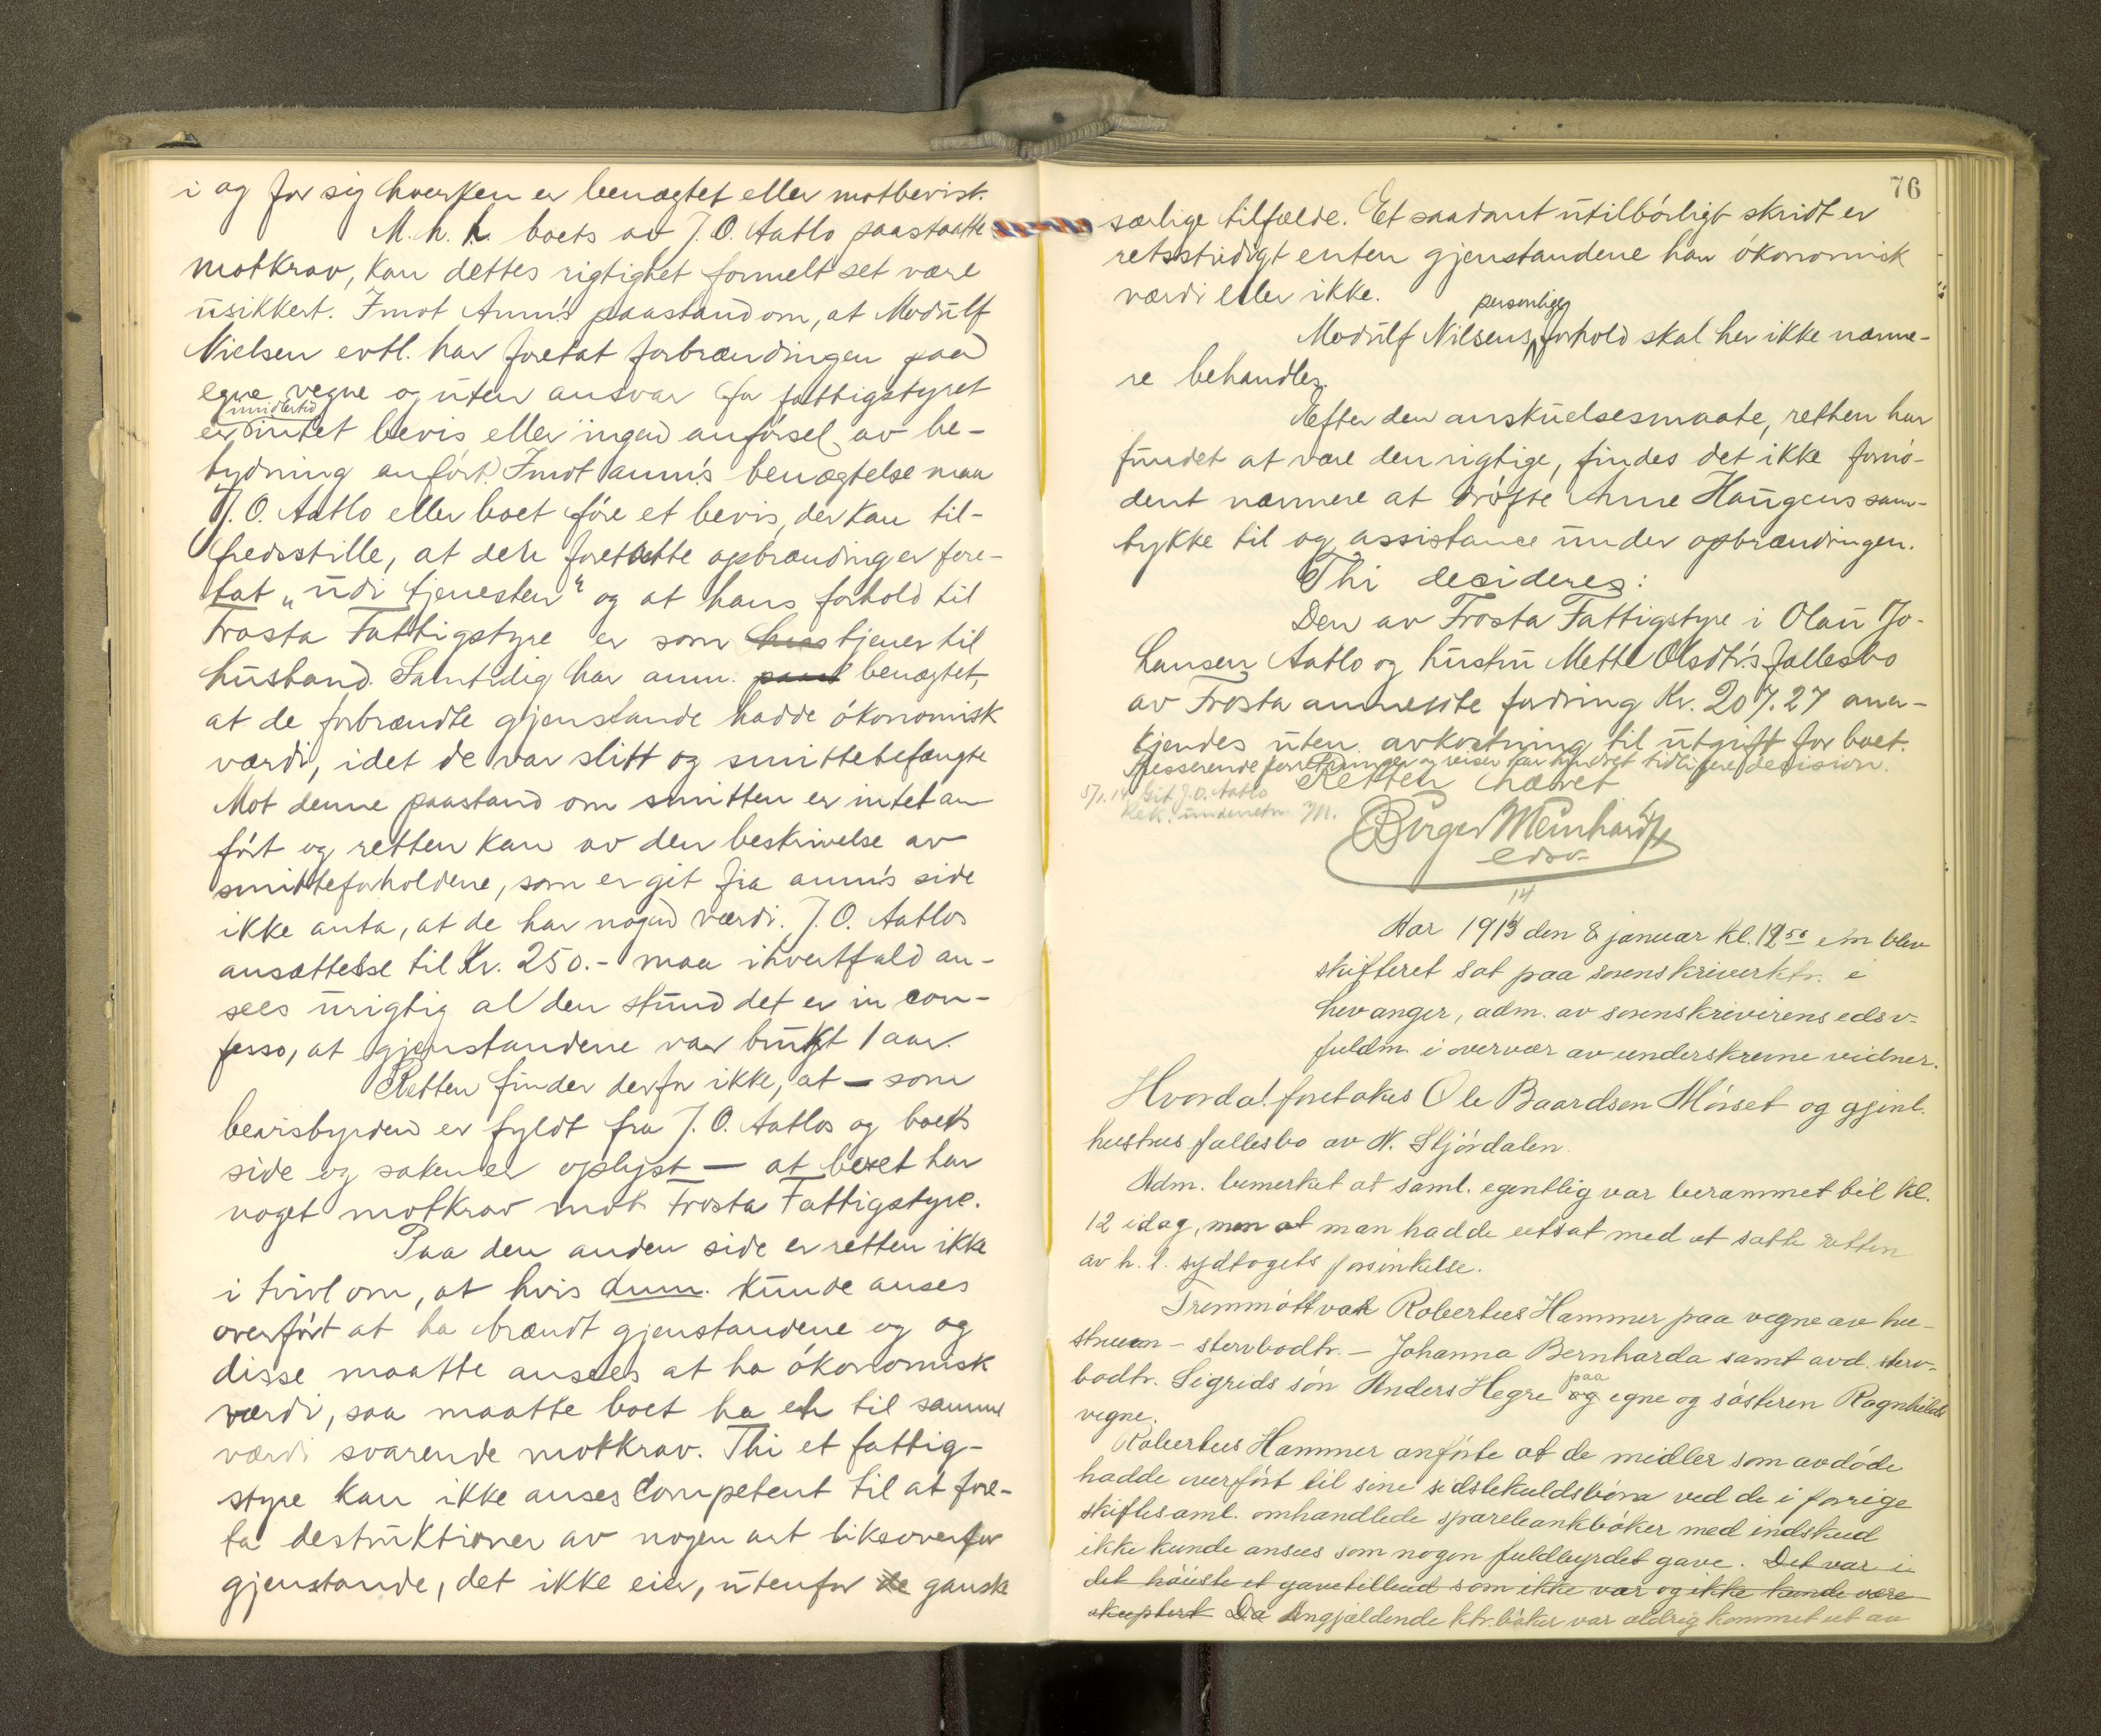 i og for sig hverken er benægtet eller motbevist.
M. h. t. boets av J. O. Aatlo paastaatte
motkrav, kan dettes rigtighet formelt set være
usikkert. Imot Anm's paastand om, at Modulf
Nielsen evtl. har foretat forbrændingen paa
egne vegne og uten ansvar for fattigstyret
imidlertid
er intet bevis eller ingen anførsel av be-
tydning anført. Imot anm's benægtelse maa
J. O. Aatlo eller boet føre et bevis, der kan til-
fredsstille, at den foretatte opbrænding er fore-
tat „udi tjenesten" og at hans forhold til
Frosta Fattigstyre er som tjener til
husbond. Samtidig har anm. benægtet,
at de forbrændte gjenstande hadde økonomisk
værdi, idet de var slitt og smittebefængte
Mot denne paastand om smitten er intet an
ført og retten kan av den beskrivelse av
smitteforholdene, som er git fra anm's side
ikke anta, at de har nogen værdi. J. O. Aatlos
ansættelse til Kr. 250.- maa ihvertfald an-
sees urigtig al den stund det er in con-
fesso, at gjenstandene var brukt 1 aar.
Retten finder derfor ikke, at - som
bevisbyrden er fyldt fra J. O. Aatlos og boets
side og saken er oplyst - at boet har
noget motkrav mot Frosta Fattigstyre.
Paa den anden side er retten ikke
i tvivl om, at hvis anm. kunde anses
overført at ha brændt gjenstandene og og
disse maatte ansees at ha økonomisk
værdi, saa maatte boet ha et til samme
værdi svarende motkrav. Thi et fattig-
styre kan ikke anses Competent til at fore-
ta destruktioner av nogen art likeoverfor
gjenstande, det ikke eier, utenfor de ganske
76
særlige tilfælde. Et saadant utilbørligt skridt er
retsstridigt enten gjenstandene har økonomisk
værdi eller ikke.
personlige
Modulf Nilsens forhold skal her ikke nærme-
re behandles.
Efter den anskuelsesmaate, retten har
fundet at være den rigtige, findes det ikke fornø-
dent nærmere at drøfte Anne Haugens sam-
tykke til og assistance under opbrændingen.
Thi decideres:
Den av Frosta Fattigstyre i Olau Jo-
hansen Aatlo og hustru Mette Olsdtr's fællesbo
av Frosta anmeldte fordring Kr. 207.27 aner-
kjendes uten avkortning til utgift for boet.
tidligere decision.
Retten hævet
5/1.14 Git J. O. Aatlo
Rek. underretn. M.
Birger Meinhardt
edsv.
14
Aar 1913 den 8 januar kl. 12 50 e/m blev
skifteret sat paa sorenskriverktr. i
Levanger, adm. av sorenskriverens edsv.
fuldm. i overvær av underskrevne vidner.
Hvorda! foretokes Ole Baardsen Mørset og gjenl.
hustrus fællesbo av N. Stjørdalen.
Adm. bemerket at saml. egentlig var berammet til kl.
12 idag, men at man hadde utsat med at sætte retten
av h. t. sydtogets forsinkelse.
Fremmøtt var Robertus Hammer paa vegne av hu-
struen - stervbodtr. - Johanna Bernharda samt avd. sterv-
paa
bodtr. Sigrids søn Anders Hegre og egne og søsteren Ragnhilds
vegne.
Robertus Hammer anførte at de midler som avdøde
hadde overført til sine sidstekuldsbørn ved de i forrige
skiftesaml. omhandlede sparebankbøker med indskud
ikke kunde ansees som nogen fuldbyrdet gave. Det var i
det høieste et gavetilbud som ikke var og ikke kunde være
akceptert Da Angjældende ktr.bøker var aldrig kommet ut av